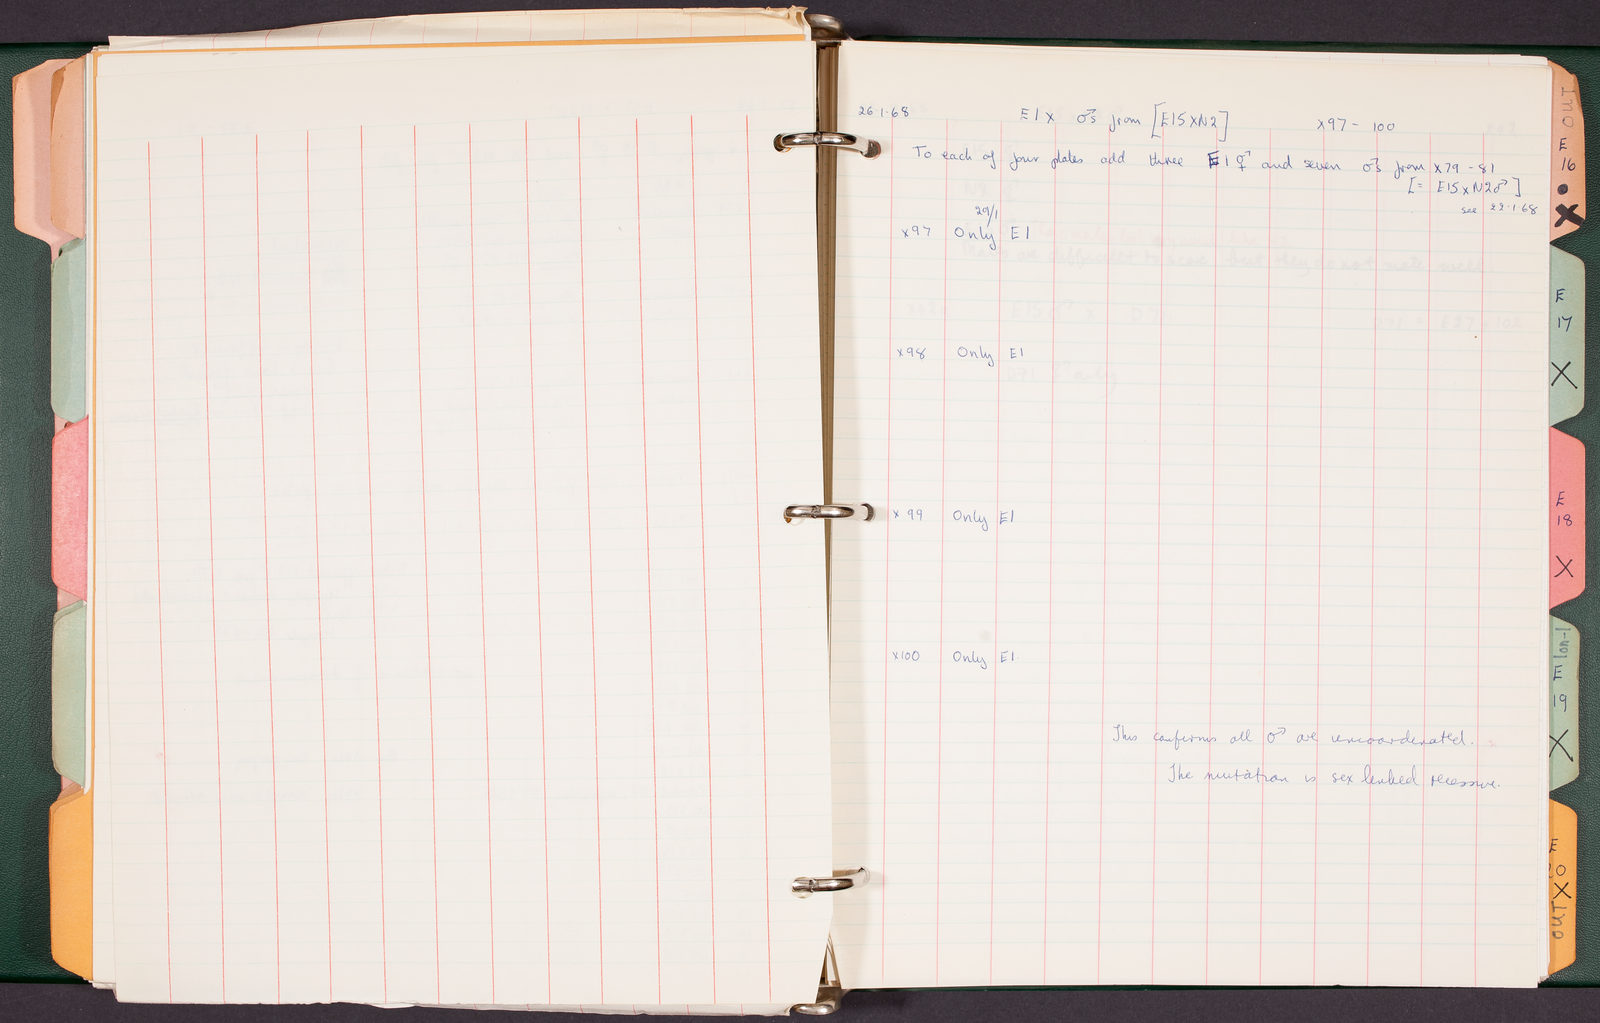 26·1·68 E1 x ♂s from [E15 x N2] x97 - 100
To each of four plates add three E1 ⚥ and seven ♂s from x79 - 81
[= E15 x N2♂]
see 22·1·68
29/1
x97 Only E1
x98 Only E1
x99 Only E1
x100 Only E1.
This confirms all ♂ are uncoordinated.
The mutation is sex linked recessive.
E
16
X
E
17
X
E
18
X
lon-1
E
19
X
E
20
X
OUT